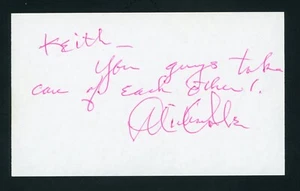 Keith —
You guys take
care of each other!